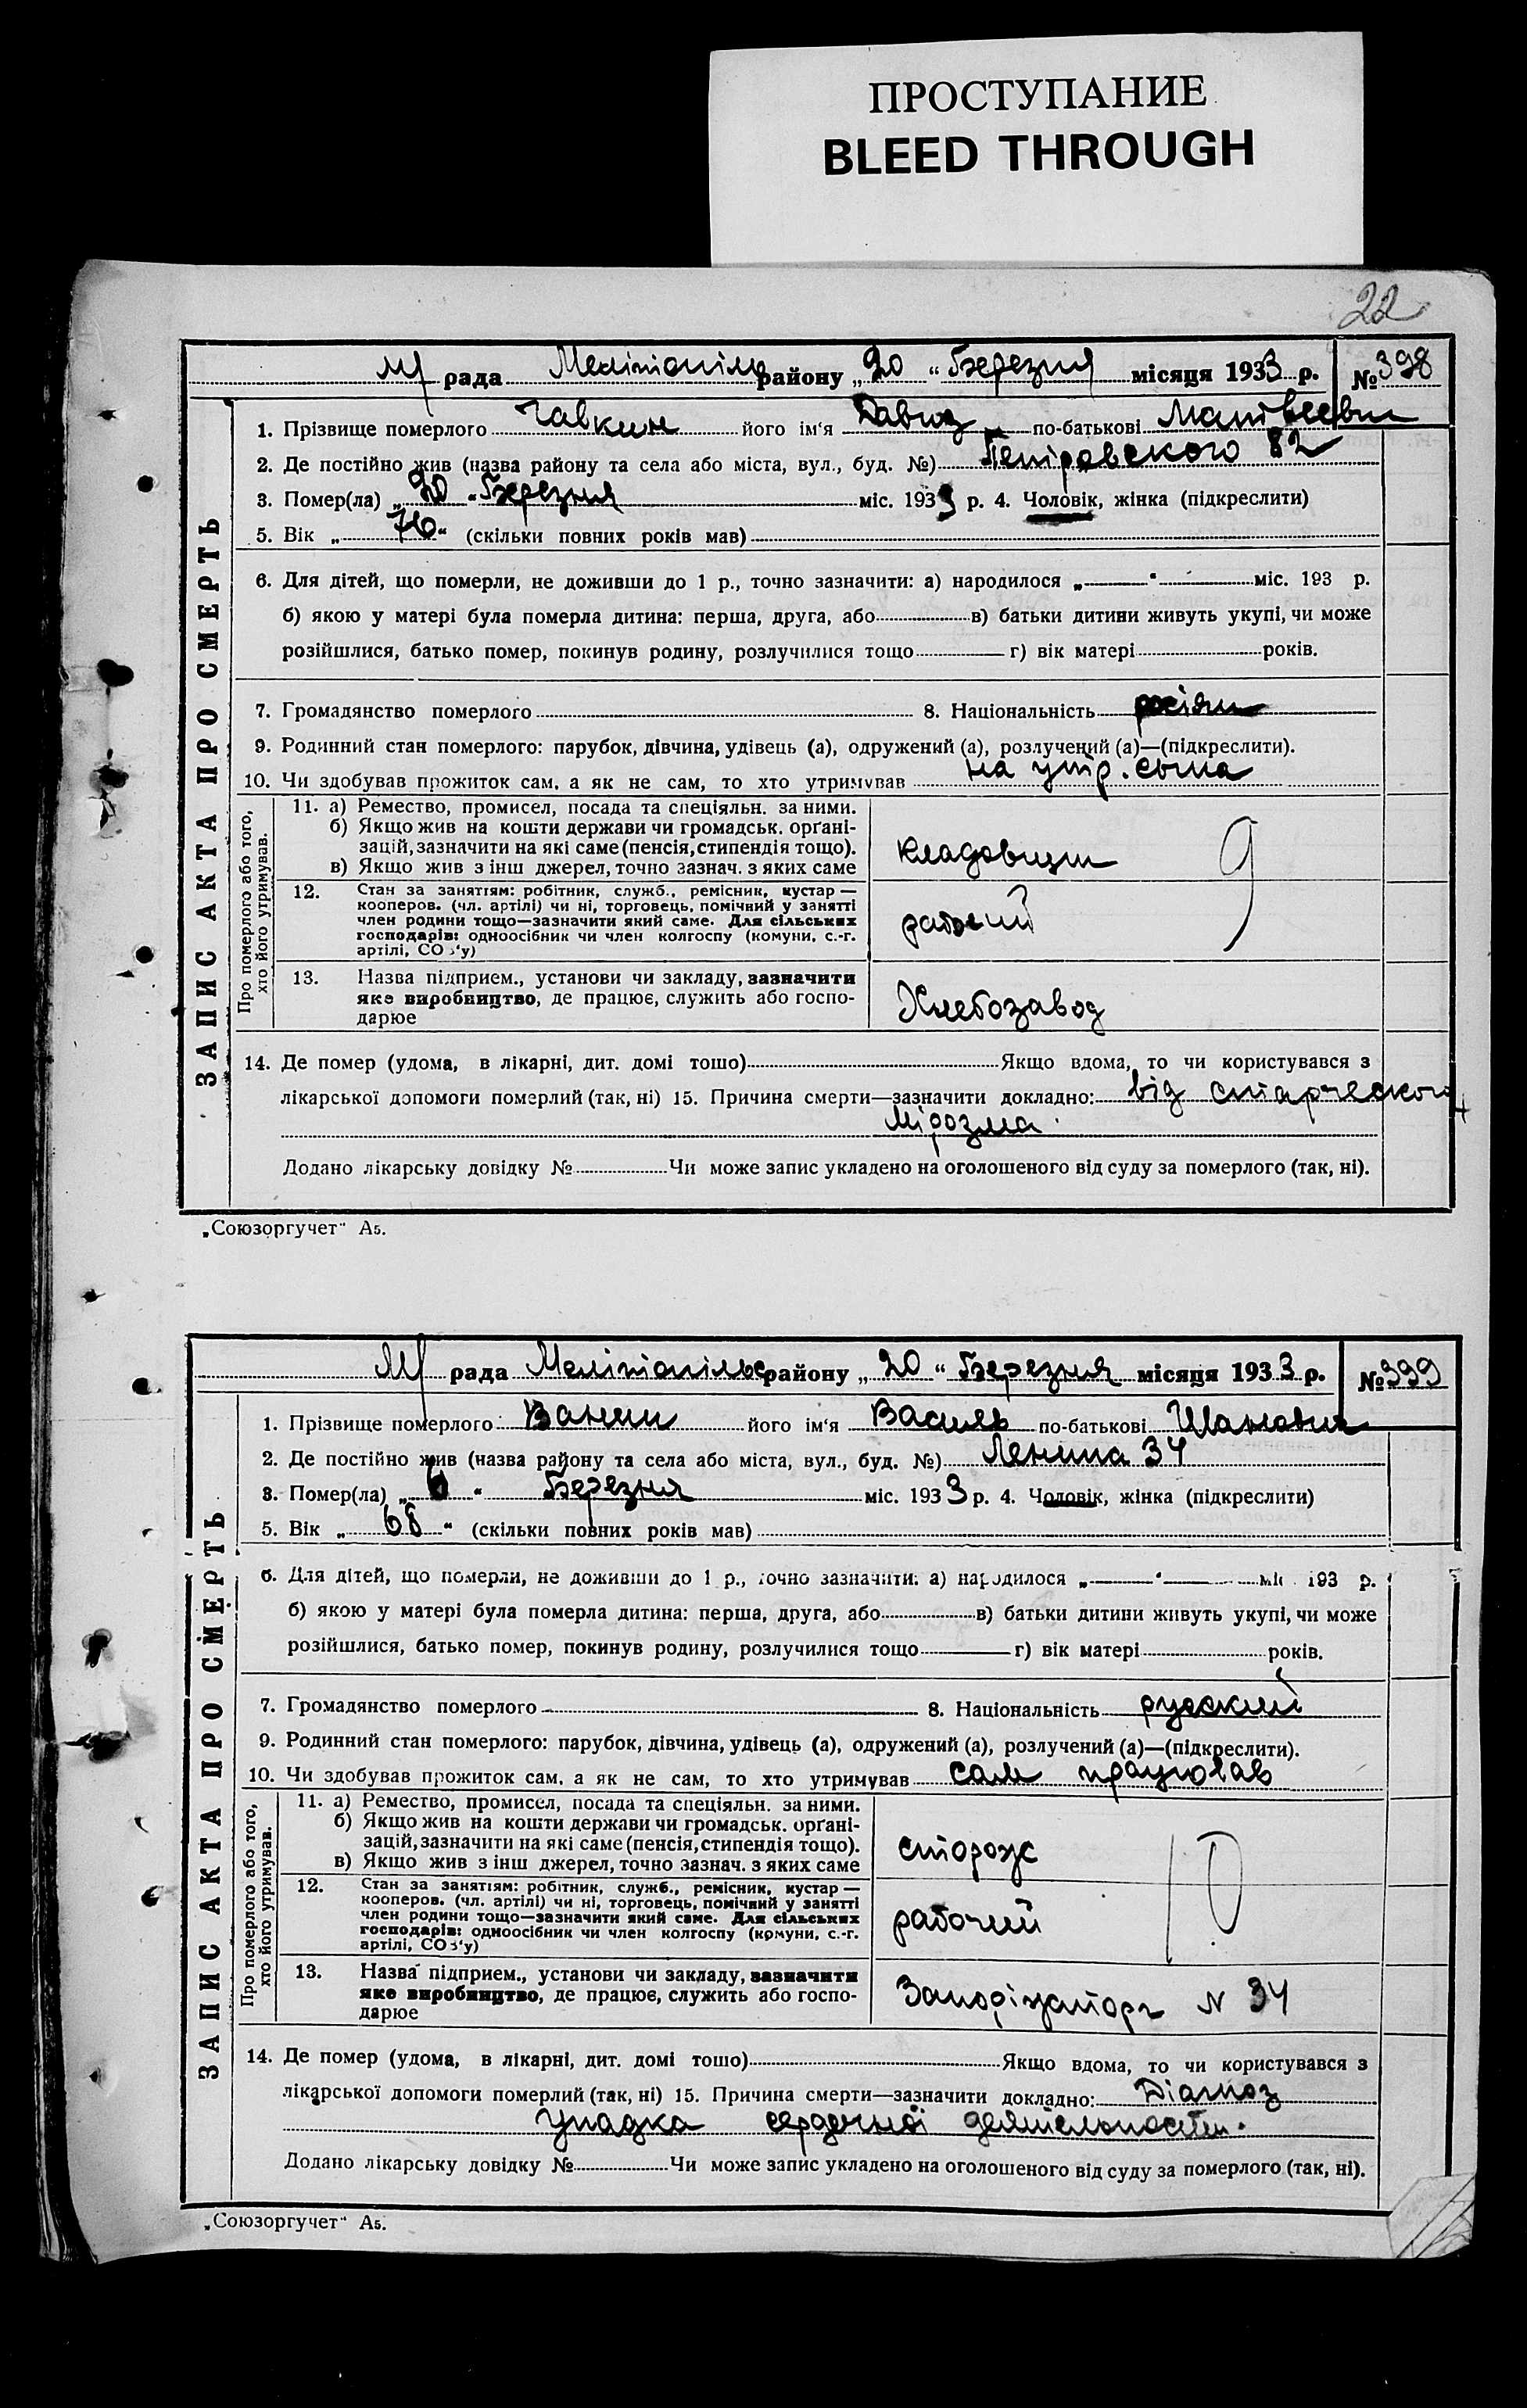 ПРОСТУПАНИЕ
BLEED THROUGH
22
М/ рада Мелітопіль району „20“ Березня місяця 1933 р. № 398
ЗАПИС АКТА ПРО СМЕРТЬ
1. Прізвище померлого Чавкин його ім'я Давид по-батькові Матвеевич
2. Де постійно жив (назва району та села або міста, вул., буд. №) 82
3. Помер(ла) „20“ Березня міс. 1933 р. 4. Чоловік, жінка (підкреслити)
5. Вік „76“ (скільки повних років мав)
6. Для дітей, що померли, не доживши до 1 р., точно зазначити: а) народилося „ “ міс. 193 р.
б) якою у матері була померла дитина: перша, друга, або в) батьки дитини живуть укупі, чи може
розійшлися, батько помер, покинув родину, розлучилися тощо г) вік матері років.
7. Громадянство померлого 8. Національність росіян
9. Родинний стан померлого: парубок, дівчина, удівець (а), одружений (а), розлучений (а)—(підкреслити).
10. Чи здобував прожиток сам, а як не сам, то хто утримував на утр. сына
Про померлого або того, хто його утримував.
11. а) Ремество, промисел, посада та спеціяльн. за ними.
б) Якщо жив на кошти держави чи громадськ. орґані-
зацій, зазначити на які саме (пенсія, стипендія тощо).
в) Якщо жив з інш джерел, точно зазнач. з яких саме
кладовщик 9
12. Стан за заняттям: робітник, служб., ремісник, кустар —
кооперов. (чл. артілі) чи ні, торговець, помічний у занятті
член родини тощо—зазначити який саме. Для сільських
господарів: одноосібник чи член колгоспу (комуни, с.-г.
артілі, СОЗ'у)
рабочий
13. Назва підприєм., установи чи закладу, зазначити
яке виробництво, де працює, служить або госпо-
дарює
Хлебозавод
14. Де помер (удома, в лікарні, дит. домі тощо) Якщо вдома, то чи користувався з
лікарської допомоги померлий (так, ні) 15. Причина смерти—зазначити докладно: від старческого
Додано лікарську довідку № Чи може запис укладено на оголошеного від суду за померлого (так, ні).
„Союзоргучет“ А5.
М/ рада Мелітопільс району „20“ Березня місяця 1933 р. № 399
ЗАПИС АКТА ПРО СМЕРТЬ
1. Прізвище померлого Ванин його ім'я Василь по-батькові
2. Де постійно жив (назва району та села або міста, вул., буд. №) Ленина 34
3. Помер(ла) „6“ Березня міс. 1933 р. 4. Чоловік, жінка (підкреслити)
5. Вік „68“ (скільки повних років мав)
6. Для дітей, що померли, не доживши до 1 р., точно зазначити: а) народилося „ “ міс. 193 р.
б) якою у матері була померла дитина: перша, друга, або в) батьки дитини живуть укупі, чи може
розійшлися, батько помер, покинув родину, розлучилися тощо г) вік матері років.
7. Громадянство померлого 8. Національність русский
9. Родинний стан померлого: парубок, дівчина, удівець (а), одружений (а), розлучений (а)—(підкреслити).
10. Чи здобував прожиток сам, а як не сам, то хто утримував сам працював
Про померлого або того, хто його утримував.
11. а) Ремество, промисел, посада та спеціяльн. за ними.
б) Якщо жив на кошти держави чи громадськ. орґані-
зацій, зазначити на які саме (пенсія, стипендія тощо).
в) Якщо жив з інш джерел, точно зазнач. з яких саме
сторож 10
12. Стан за заняттям: робітник, служб., ремісник, кустар —
кооперов. (чл. артілі) чи ні, торговець, помічний у занятті
член родини тощо—зазначити який саме. Для сільських
господарів: одноосібник чи член колгоспу (комуни, с.-г.
артілі, СОЗ'у)
рабочий
13. Назва підприєм., установи чи закладу, зазначити
яке виробництво, де працює, служить або госпо-
дарює
N 34
14. Де помер (удома, в лікарні, дит. домі тощо) Якщо вдома, то чи користувався з
лікарської допомоги померлий (так, ні) 15. Причина смерти—зазначити докладно: Діагноз
упадка сердечной деятельности.
Додано лікарську довідку № Чи може запис укладено на оголошеного від суду за померлого (так, ні).
„Союзоргучет“ А5.